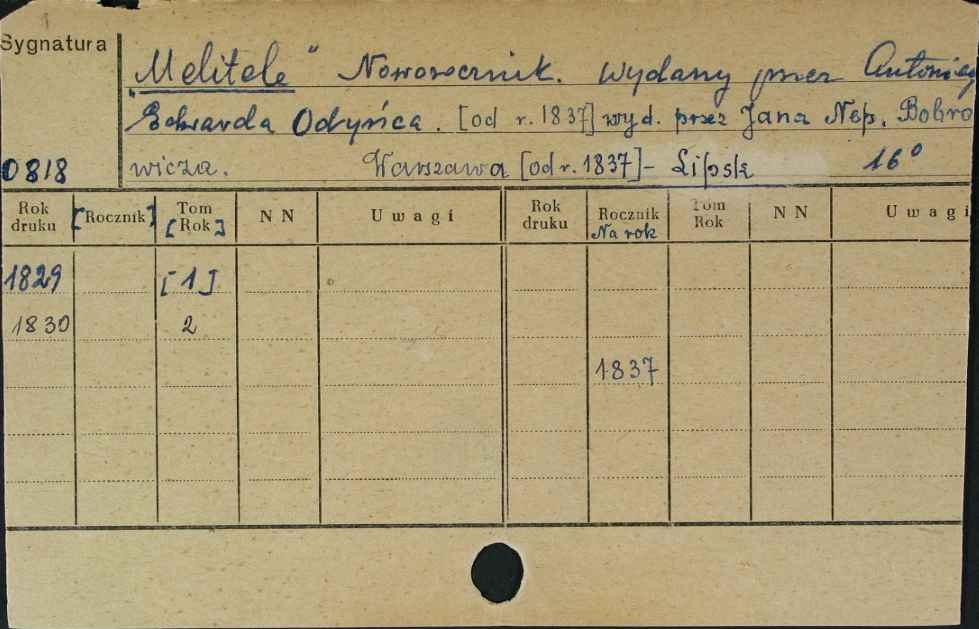 Sygnatura
„Melitele“ Noworocznik. Wydany przez Antoniego
Edwarda Odyńca. [od r. 1837] wyd. przez Jana Nep. Bobro
0818 wicza. Warszawa [od r. 1837] - Lipsk 16°
Rok druku [Rocznik] Tom [Rok] NN Uwagi Rok druku Rocznik Na rok Tom Rok NN Uwagi
1829 [1]
1830 2
1837